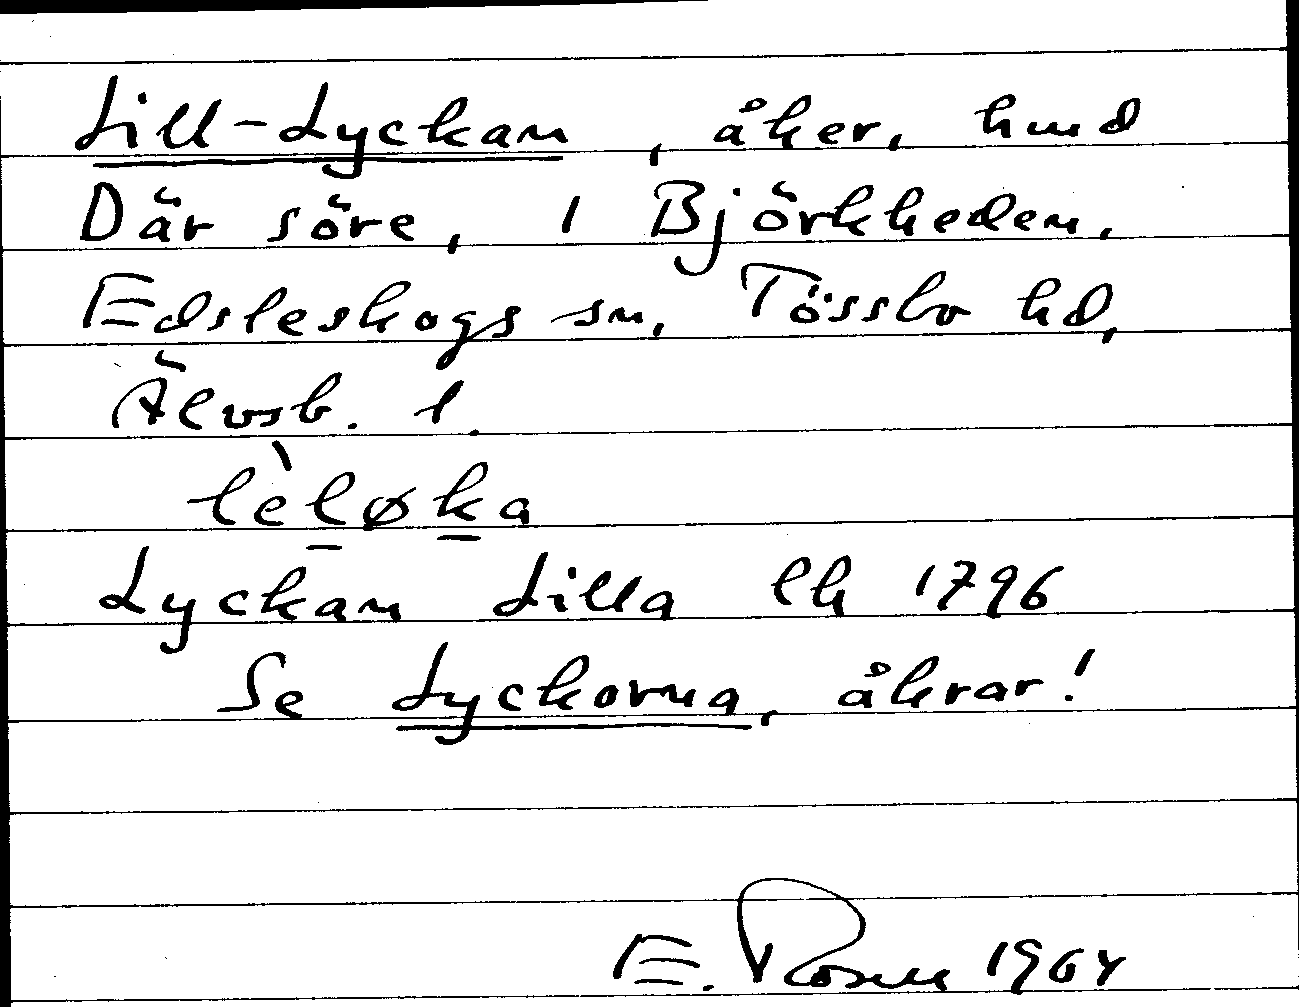 Lill-Lyckan, åker, hmd
Där söre, 1 Björkheden,
Edsleskogs sn, Tössbo hd,
Älvsb. l.
lèløka
Lyckan Lilla lh 1796
Se Lyckorna, åkrar!
E. Rosell 1964